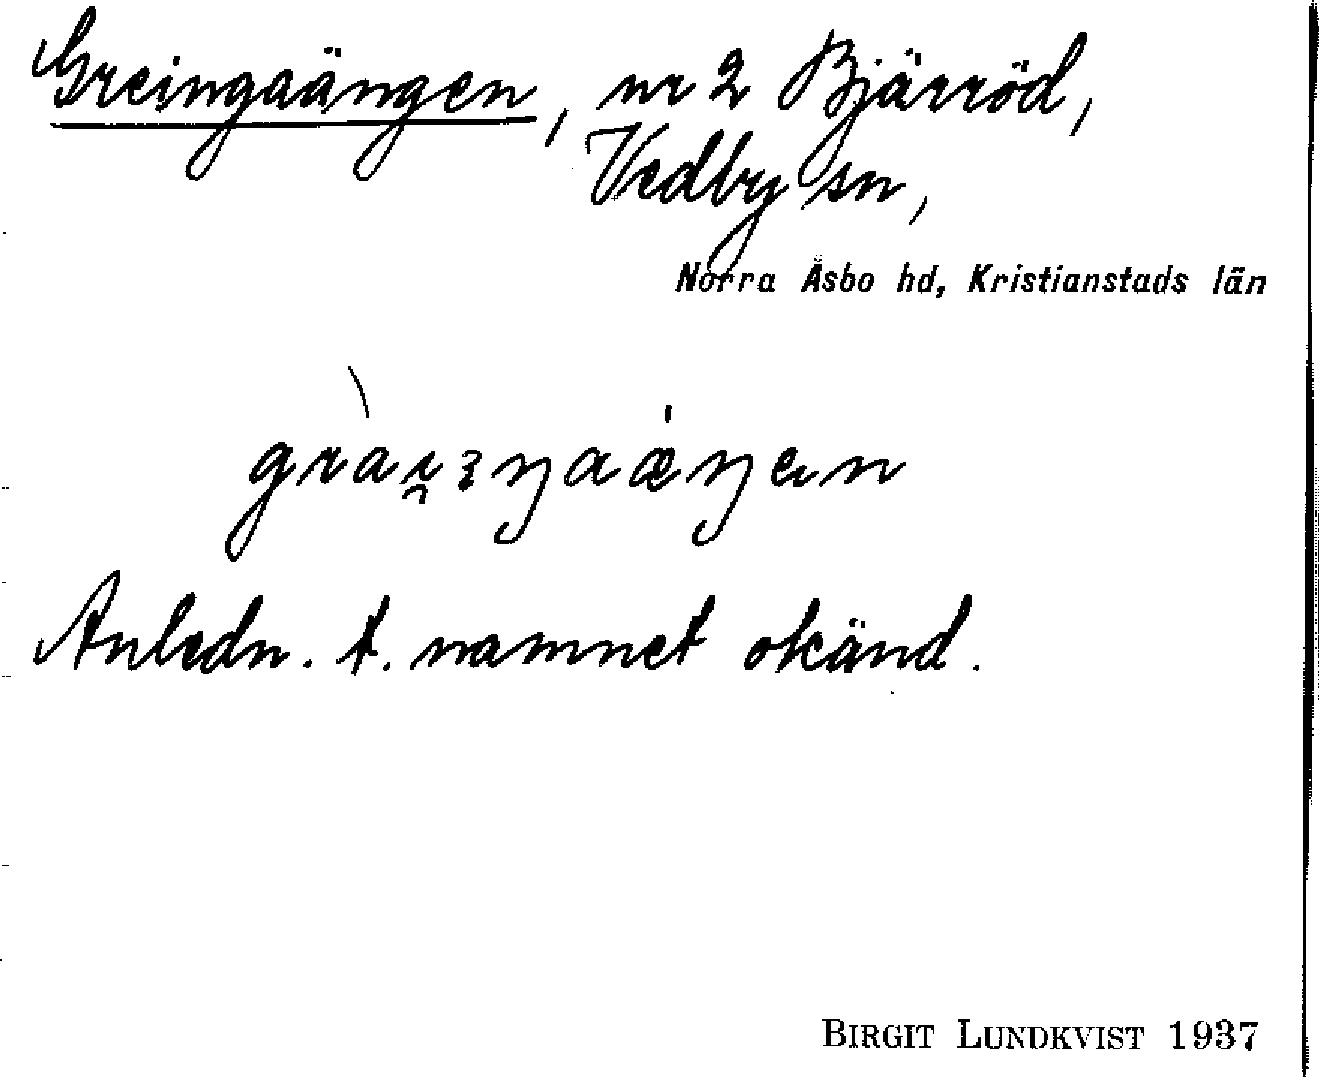 Greingaängen, nr 2 Bjärröd,
Vedby sn,
Norra Åsbo hd, Kristianstads län
Anledn. t. namnet okänd.
BIRGIT LUNDKVIST 1937